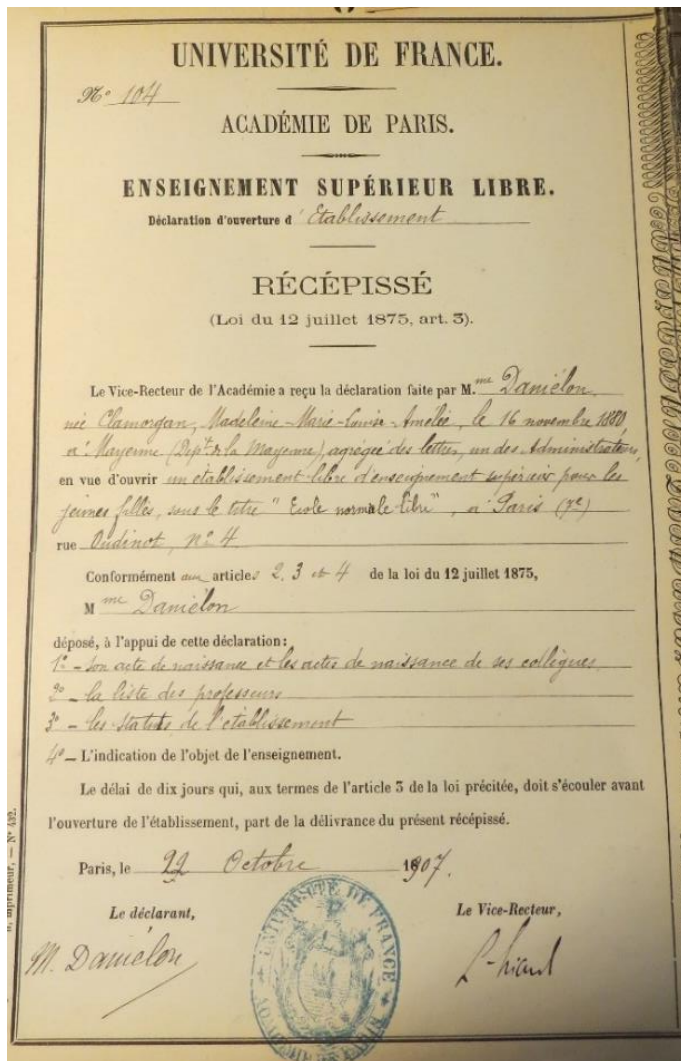 UNIVERSITÉ DE FRANCE.
No 104
ACADÉMIE DE PARIS.
ENSEIGNEMENT SUPÉRIEUR LIBRE.
Déclaration d'ouverture d' Etablissement
RÉCÉPISSÉ
(Loi du 12 juillet 1875, art. 3).
Le Vice-Recteur de l'Académie a reçu la déclaration faite par M.me Daniélou,
née Clamorgan, Madeleine-Marie-Louise-Amélie, le 16 novembre 1880,
à Mayenne (Dépt de la Mayenne) agrégée des lettres, un des Administrateurs,
en vue d'ouvrir un établissement libre d'enseignement supérieur pour les
jeunes filles, sous le titre "Ecole normale libre", à Paris (7e)
rue Oudinot, no 4
Conformément aux articles 2, 3 et 4 de la loi du 12 juillet 1875,
Mme Daniélou
déposé, à l'appui de cette déclaration :
1o - son acte de naissance et les actes de naissance de ses collègues
2o - la liste des professeurs
3o - les statuts de l'établissement
4o - L'indication de l'objet de l'enseignement.
Le délai de dix jours qui, aux termes de l'article 3 de la loi précitée, doit s'écouler avant
l'ouverture de l'établissement, part de la délivrance du présent récépissé.
Paris, le 22 Octobre 1907.
Le déclarant,
Le Vice-Recteur,
M. Daniélou
UNIVERSITÉ DE FRANCE
ACADÉMIE DE PARIS
imprimeur, — No 432.